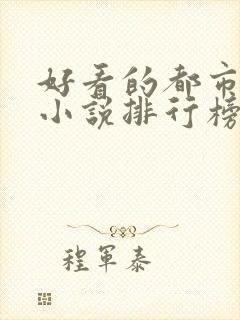 好看的都市
小说排行榜
程军泰